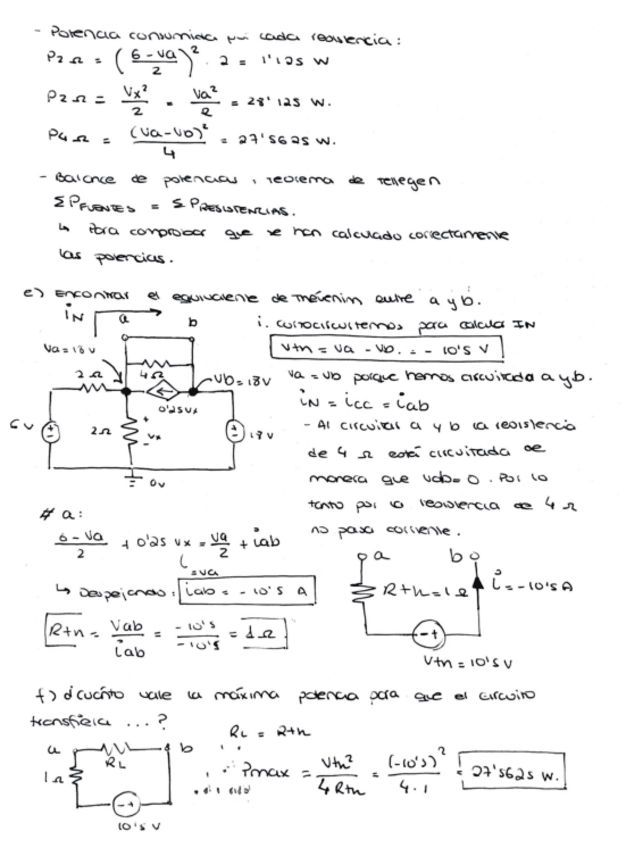 - Potencia consumida por cada resistencia:
P2Ω = ((6 - Va)/2)² · 2 = 1'125 W
P2Ω = Vx²/2 = Va²/2 = 28'125 W.
P4Ω = (Va-Vb)²/4 = 27'5625 W.
- Balance de potencias, teorema de Tellegen
ΣPFUENTES = ΣPRESISTENCIAS.
↳ Para comprobar que se han calculado correctamente
las potencias.
e) Encontrar el equivalente de Thévenin entre a y b.
iN
a
b
i. cortocircuitemos para calcular IN
Va = 18 V
Vtn = Va - Vb. = - 10'5 V
2Ω
4Ω
Vb = 18V
Va = Vb porque hemos circuitado a y b.
0'25Vx
iN = icc = iab
6V
2Ω
+
Vx
-
18V
- Al circuitar a y b la resistencia
de 4 Ω está circuitada de
0V
manera que Vab = 0. Por lo
tanto por la resistencia de 4 Ω
no pasa corriente.
# a:
(6 - Va)/2 + 0'25 Vx = Va/2 + iab
= Va
↳ Despejando: iab = - 10'5 A
a
b
Rtn = 1Ω
i = -10'5 A
Rtn = Vab/iab = -10'5/-10'5 = 1Ω
- +
Vtn = 10'5 V
f) ¿Cuánto vale la máxima potencia para que el circuito
transfiera ...?
RL = Rtn
a
RL
b
1Ω
Pmax = Vtn²/4Rtn = (-10'5)²/4·1 = 27'5625 W.
- +
10'5 V